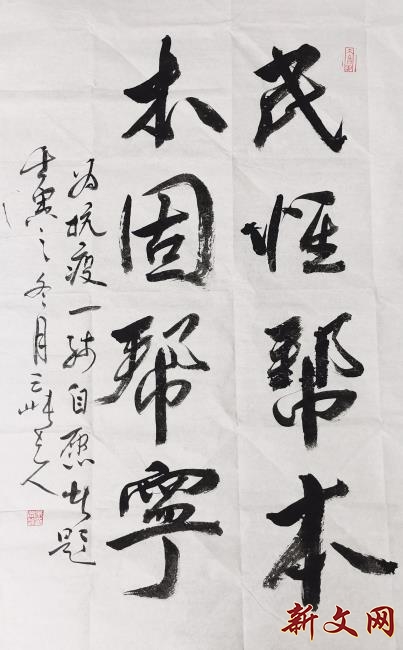 民惟帮本
本固帮寧
为抗疫一线自愿者题
壬寅之冬月
新文网